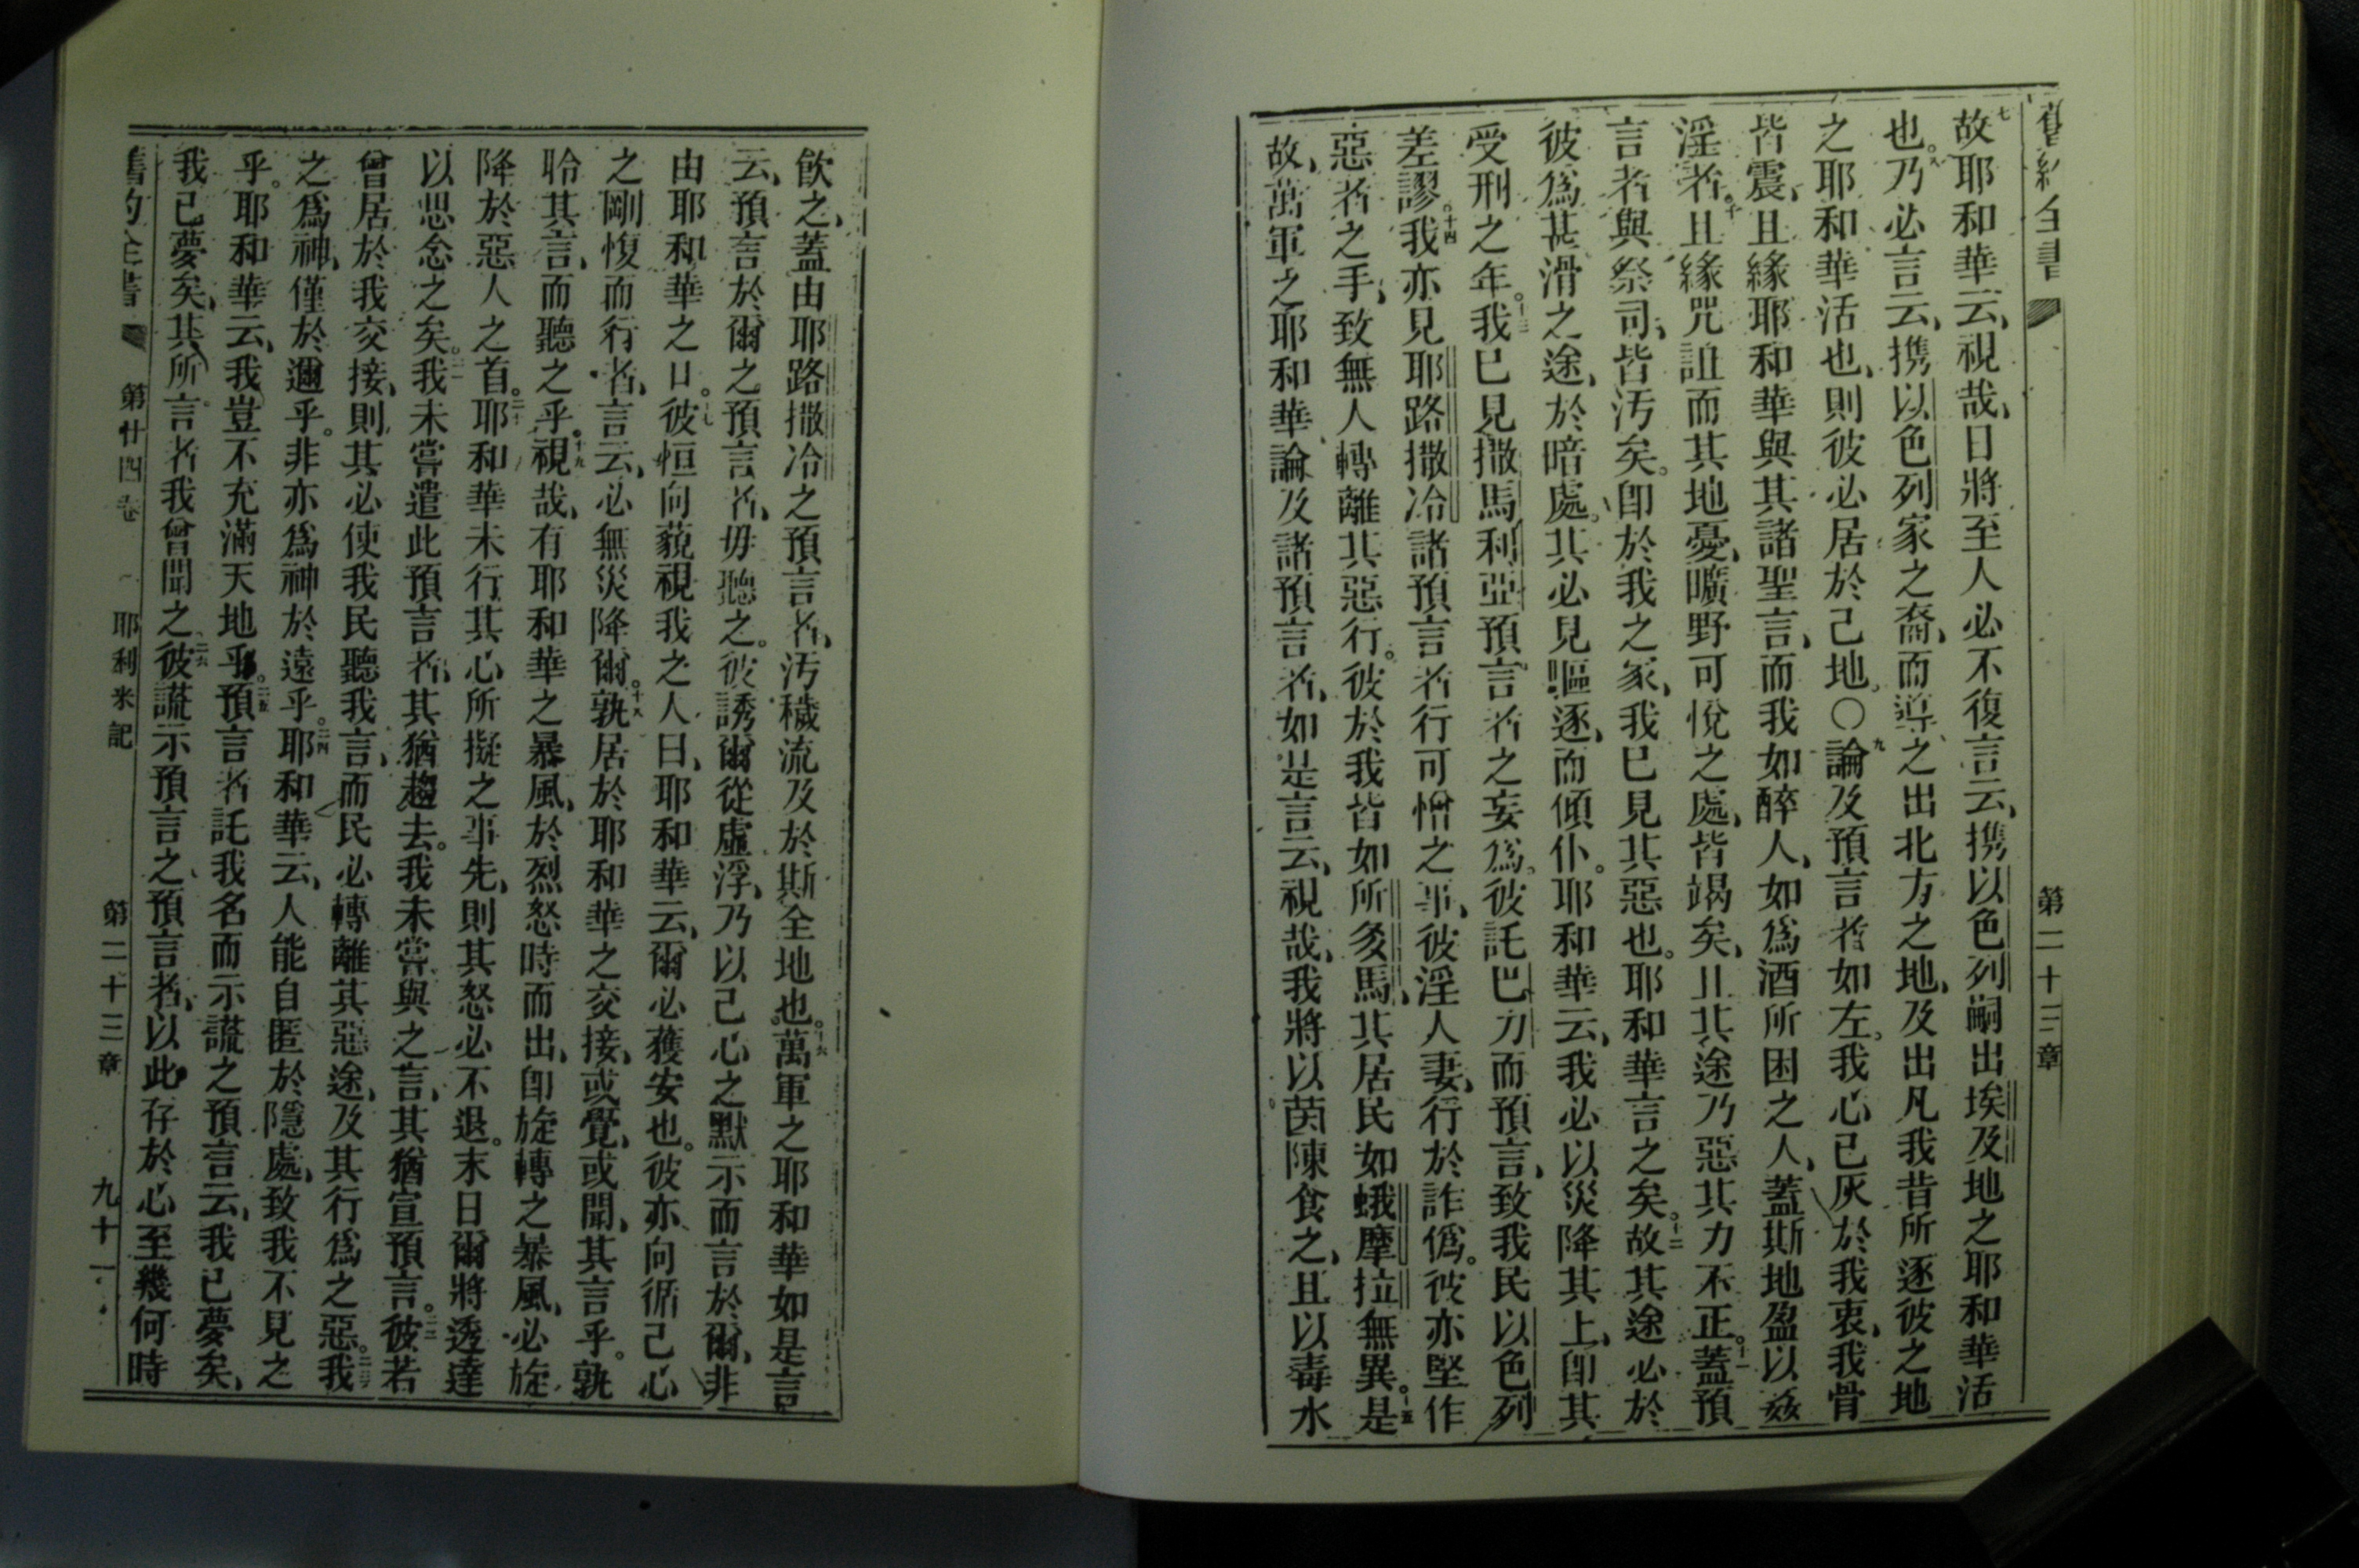 舊約全書 第二十三章
七故耶和華云、視哉、日將至人必不復言云、携以色列嗣出埃及地之耶和華活
也。八乃必言云、携以色列家之裔、而導之出北方之地、及出凡我昔所逐彼之地
之耶和華活也、則彼必居於己地。○九論及預言者如左。我心已灰於我衷、我骨
皆震、且緣耶和華與其諸聖言、而我如醉人、如爲酒所困之人、蓋斯地盈以姦
淫者。十且緣咒詛而其地憂、曠野可悅之處、皆竭矣、且其途乃惡其力不正。十一蓋預
言者與祭司、皆汚矣。卽於我之家、我已見其惡也。耶和華言之矣。十二故其途必於
彼爲甚滑之途、於暗處。其必見驅逐、而傾仆。耶和華云、我必以災降其上、卽其
受刑之年。十三我已見撒馬利亞預言者之妄爲。彼託巴力而預言、致我民以色列
差謬。十四我亦見耶路撒冷諸預言者行可憎之事、彼淫人妻、行於詐僞。彼亦堅作
惡者之手、致無人轉離其惡行。彼於我皆如所多馬、其居民如蛾摩拉無異。十五是
故、萬軍之耶和華、論及諸預言者、如是言云、視哉、我將以茵陳食之、且以毒水
飲之、蓋由耶路撒冷之預言者、汚穢流及於斯全地也。十六萬軍之耶和華如是言
云、預言於爾之預言者、毋聽之。彼誘爾從虛浮、乃以己心之默示而言於爾、非
由耶和華之口。十七彼恒向藐視我之人、曰、耶和華云、爾必獲安也。彼亦向循己心
之剛愎而行者、言云、必無災降爾。十八孰居於耶和華之交接、或覺、或聞、其言乎。孰
聆其言、而聽之乎。十九視哉、有耶和華之暴風、於烈怒時而出、卽旋轉之暴風、必旋
降於惡人之首。二十耶和華未行其心所擬之事先、則其怒必不退。末日爾將透達
以思念之矣。二一我未嘗遣此預言者、其猶趨去。我未嘗與之言、其猶宣預言。二二彼若
曾居於我交接、則其必使我民聽我言、而民必轉離其惡途、及其行爲之惡。二三我
之爲神、僅於邇乎。非亦爲神於遠乎。二四耶和華云、人能自匿於隱處、致我不見之
乎。耶和華云、我豈不充滿天地乎。二五預言者託我名而示謊之預言云、我已夢矣、
我已夢矣、其所言者我曾聞之。二六彼謊示預言之預言者、以此存於心至幾何時
舊約全書 第廿四卷 耶利米記 第二十三章 九十一